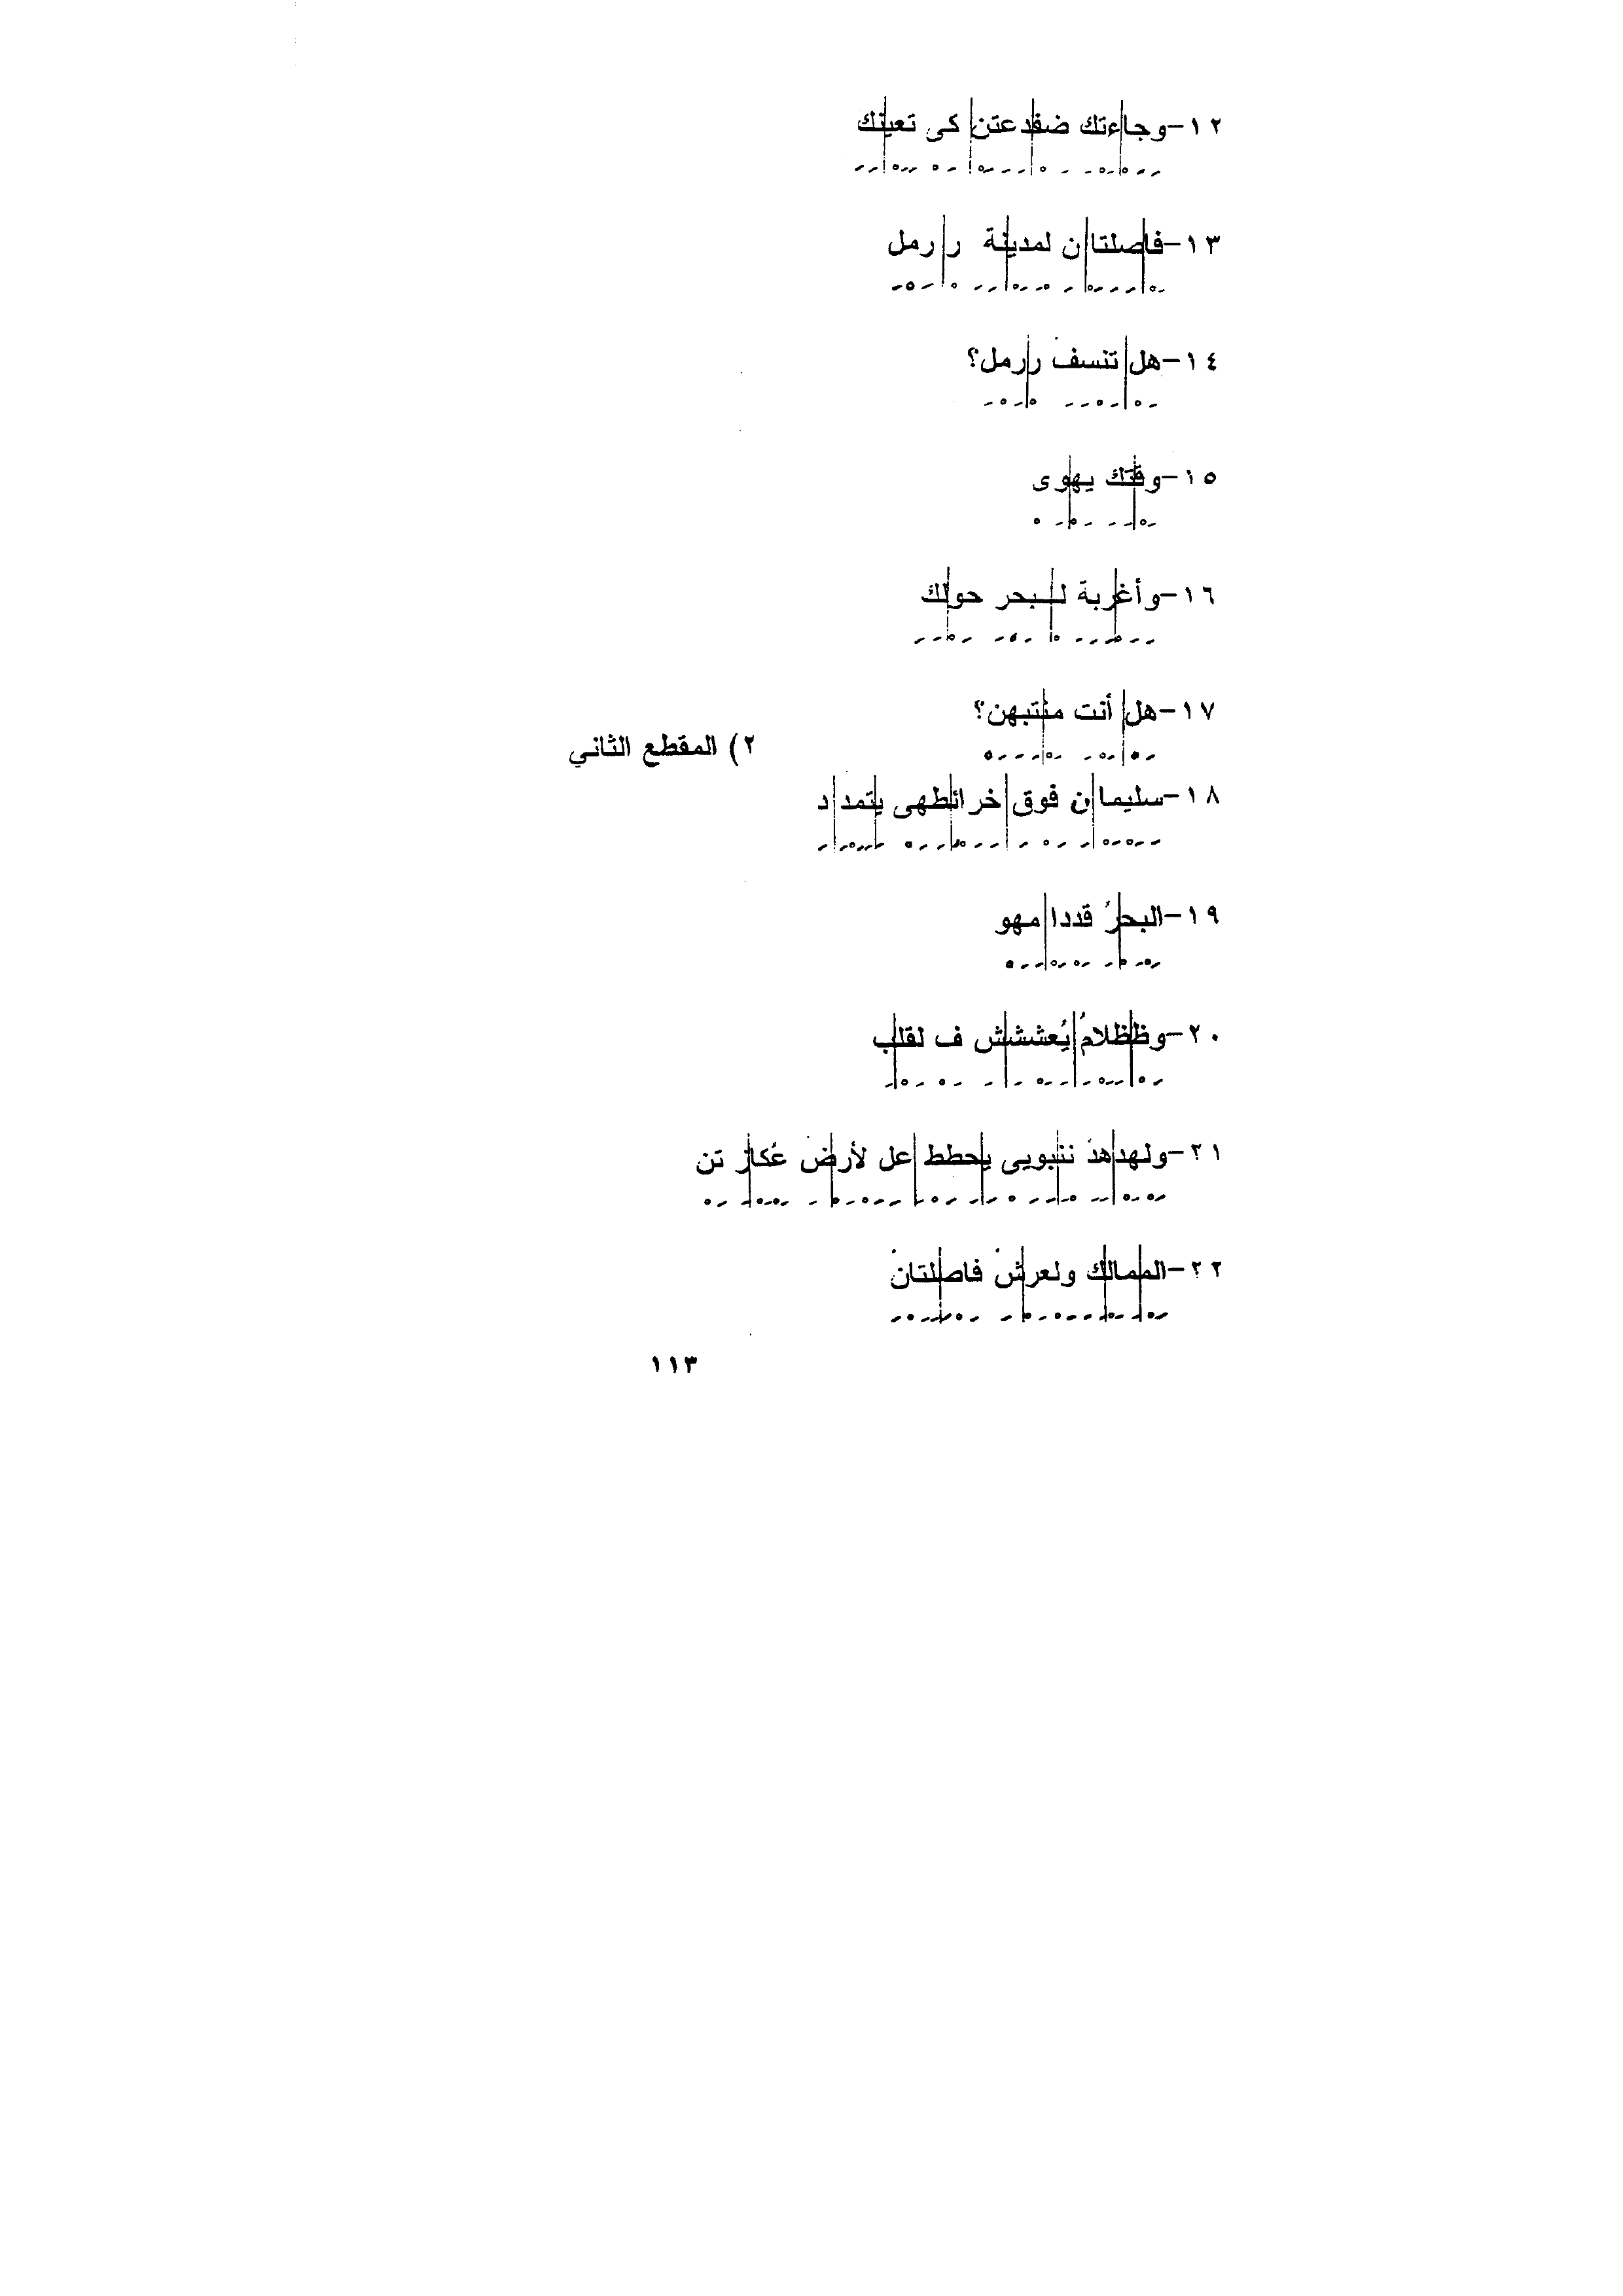 ١٢-وجاءتك ضفدعتن كى تعينك
١٣-فاصلتان لمدينة ر رمل
١٤-هل تنسف ررمل؟
١٥-وقتك يهوى
١٦-وأغربة لبحر حولك
١٧-هل أنت منتبهن؟
٢) المقطع الثاني
١٨-سليمان فوق خرائطهى يتمدد
١٩-البحرُ قددامهو
٢٠-وظظلامُ يُعششش ف لقلب
٢١-ولهدهدُ ننبويى يحطط عل لأرض عُكاز تن
٢٢-الممالك ولعرش فاصلتان
١١٣